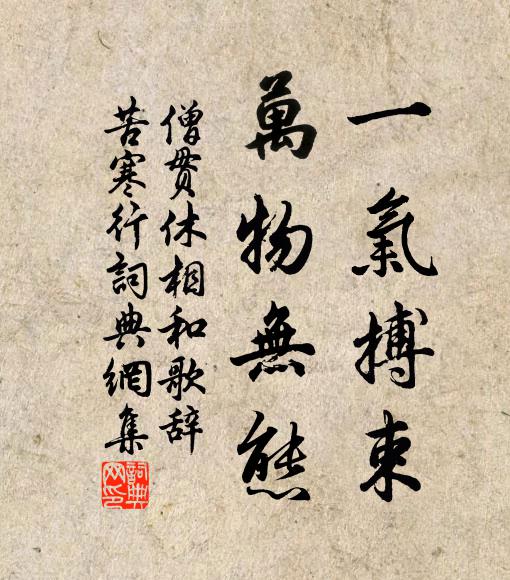 一氣搏束
萬物無態
僧贯休相和歌辞
苦寒行詞典網集
詞典網印